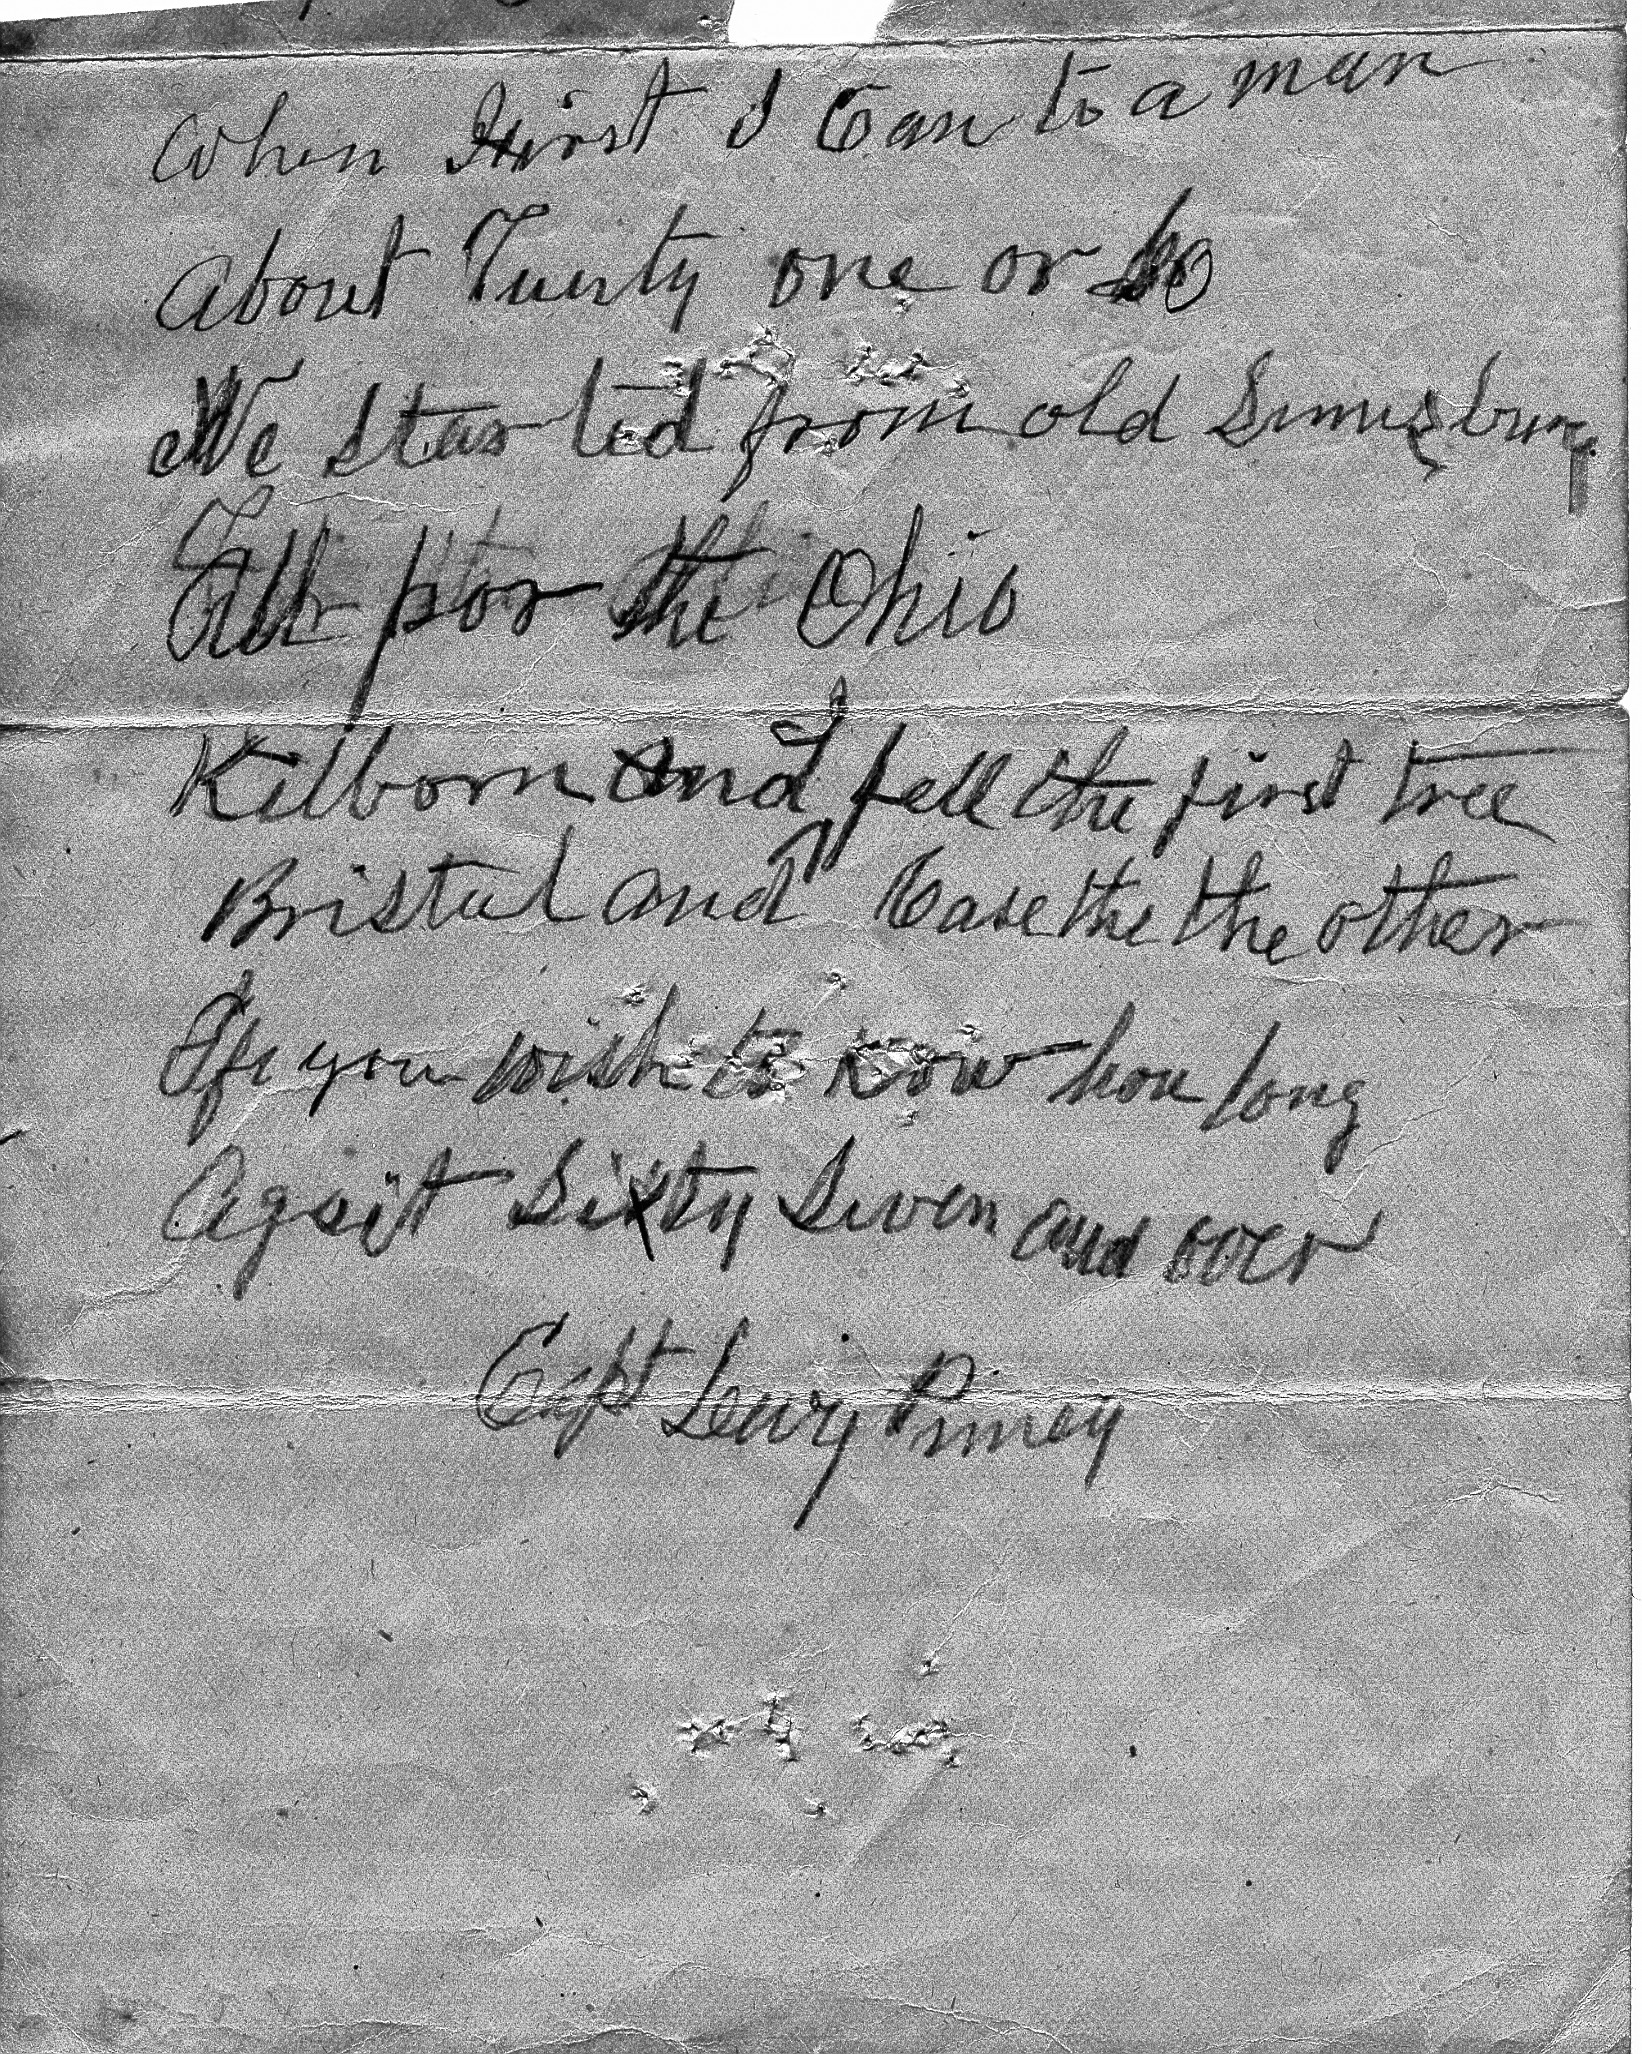 When First I Cam to a man
about Twenty one or so
We started from old Simsbury
All for the Ohio
Kilborn and I fell the first tree
Bristul and Case the the other
If you wish to know how long
Ago it Sixty Seven and over
Capt Levij Pinney